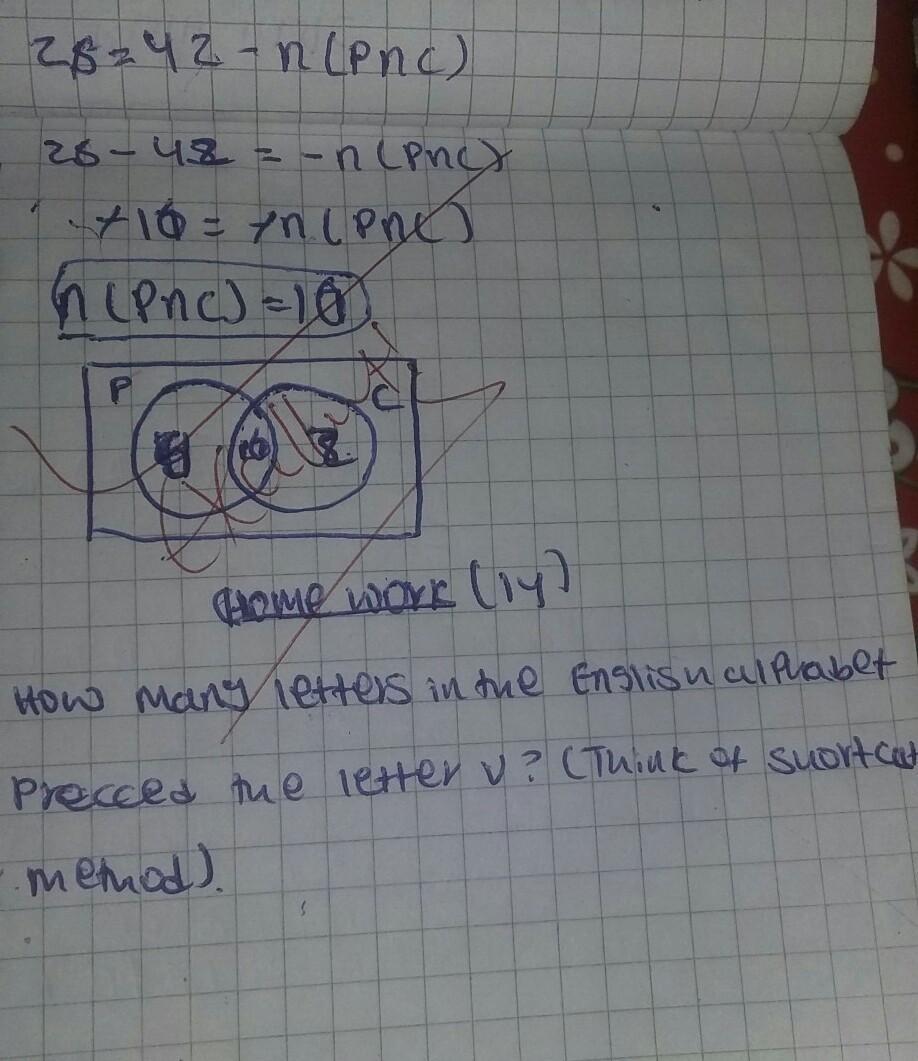 26=42-n(PnC)
26-42 = -n(PnC)
+16= +n(PnC)
n(PnC)=16
P C
16
Home work (14)
How many letters in the English alphabet
precced the letter v? (Think of shortcut
method).